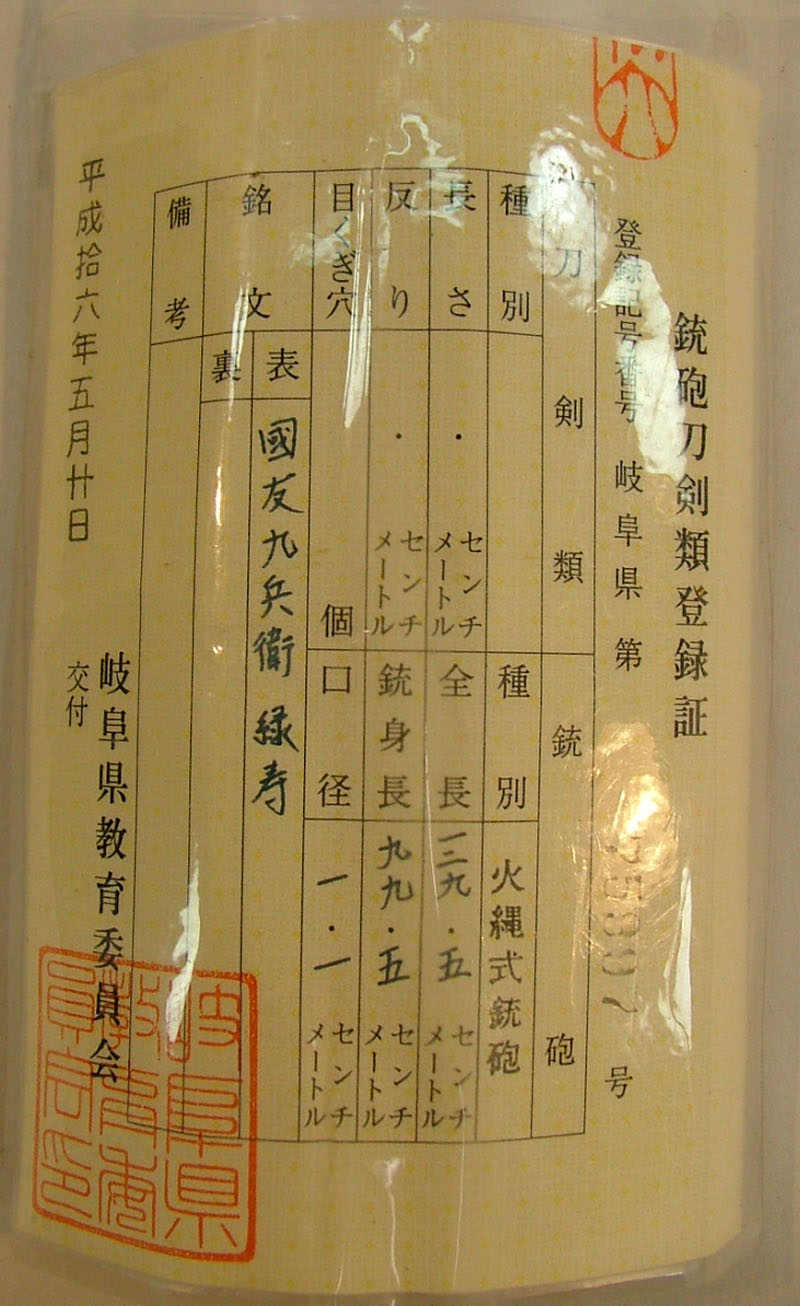 銃砲刀剣類登録証
登録記号番号 岐阜県 第 号
刀剣類
銃砲
種別
種別 火縄式銃砲
長さ ・ センチメートル
全長 一三九・五 センチメートル
反り ・ センチメートル
銃身長 九九・五 センチメートル
目くぎ穴 個
口径 一・一 センチメートル
銘文
表 國友九兵衛 寿
裏
備考
平成拾六年五月廿日
岐阜県教育委員会
交付